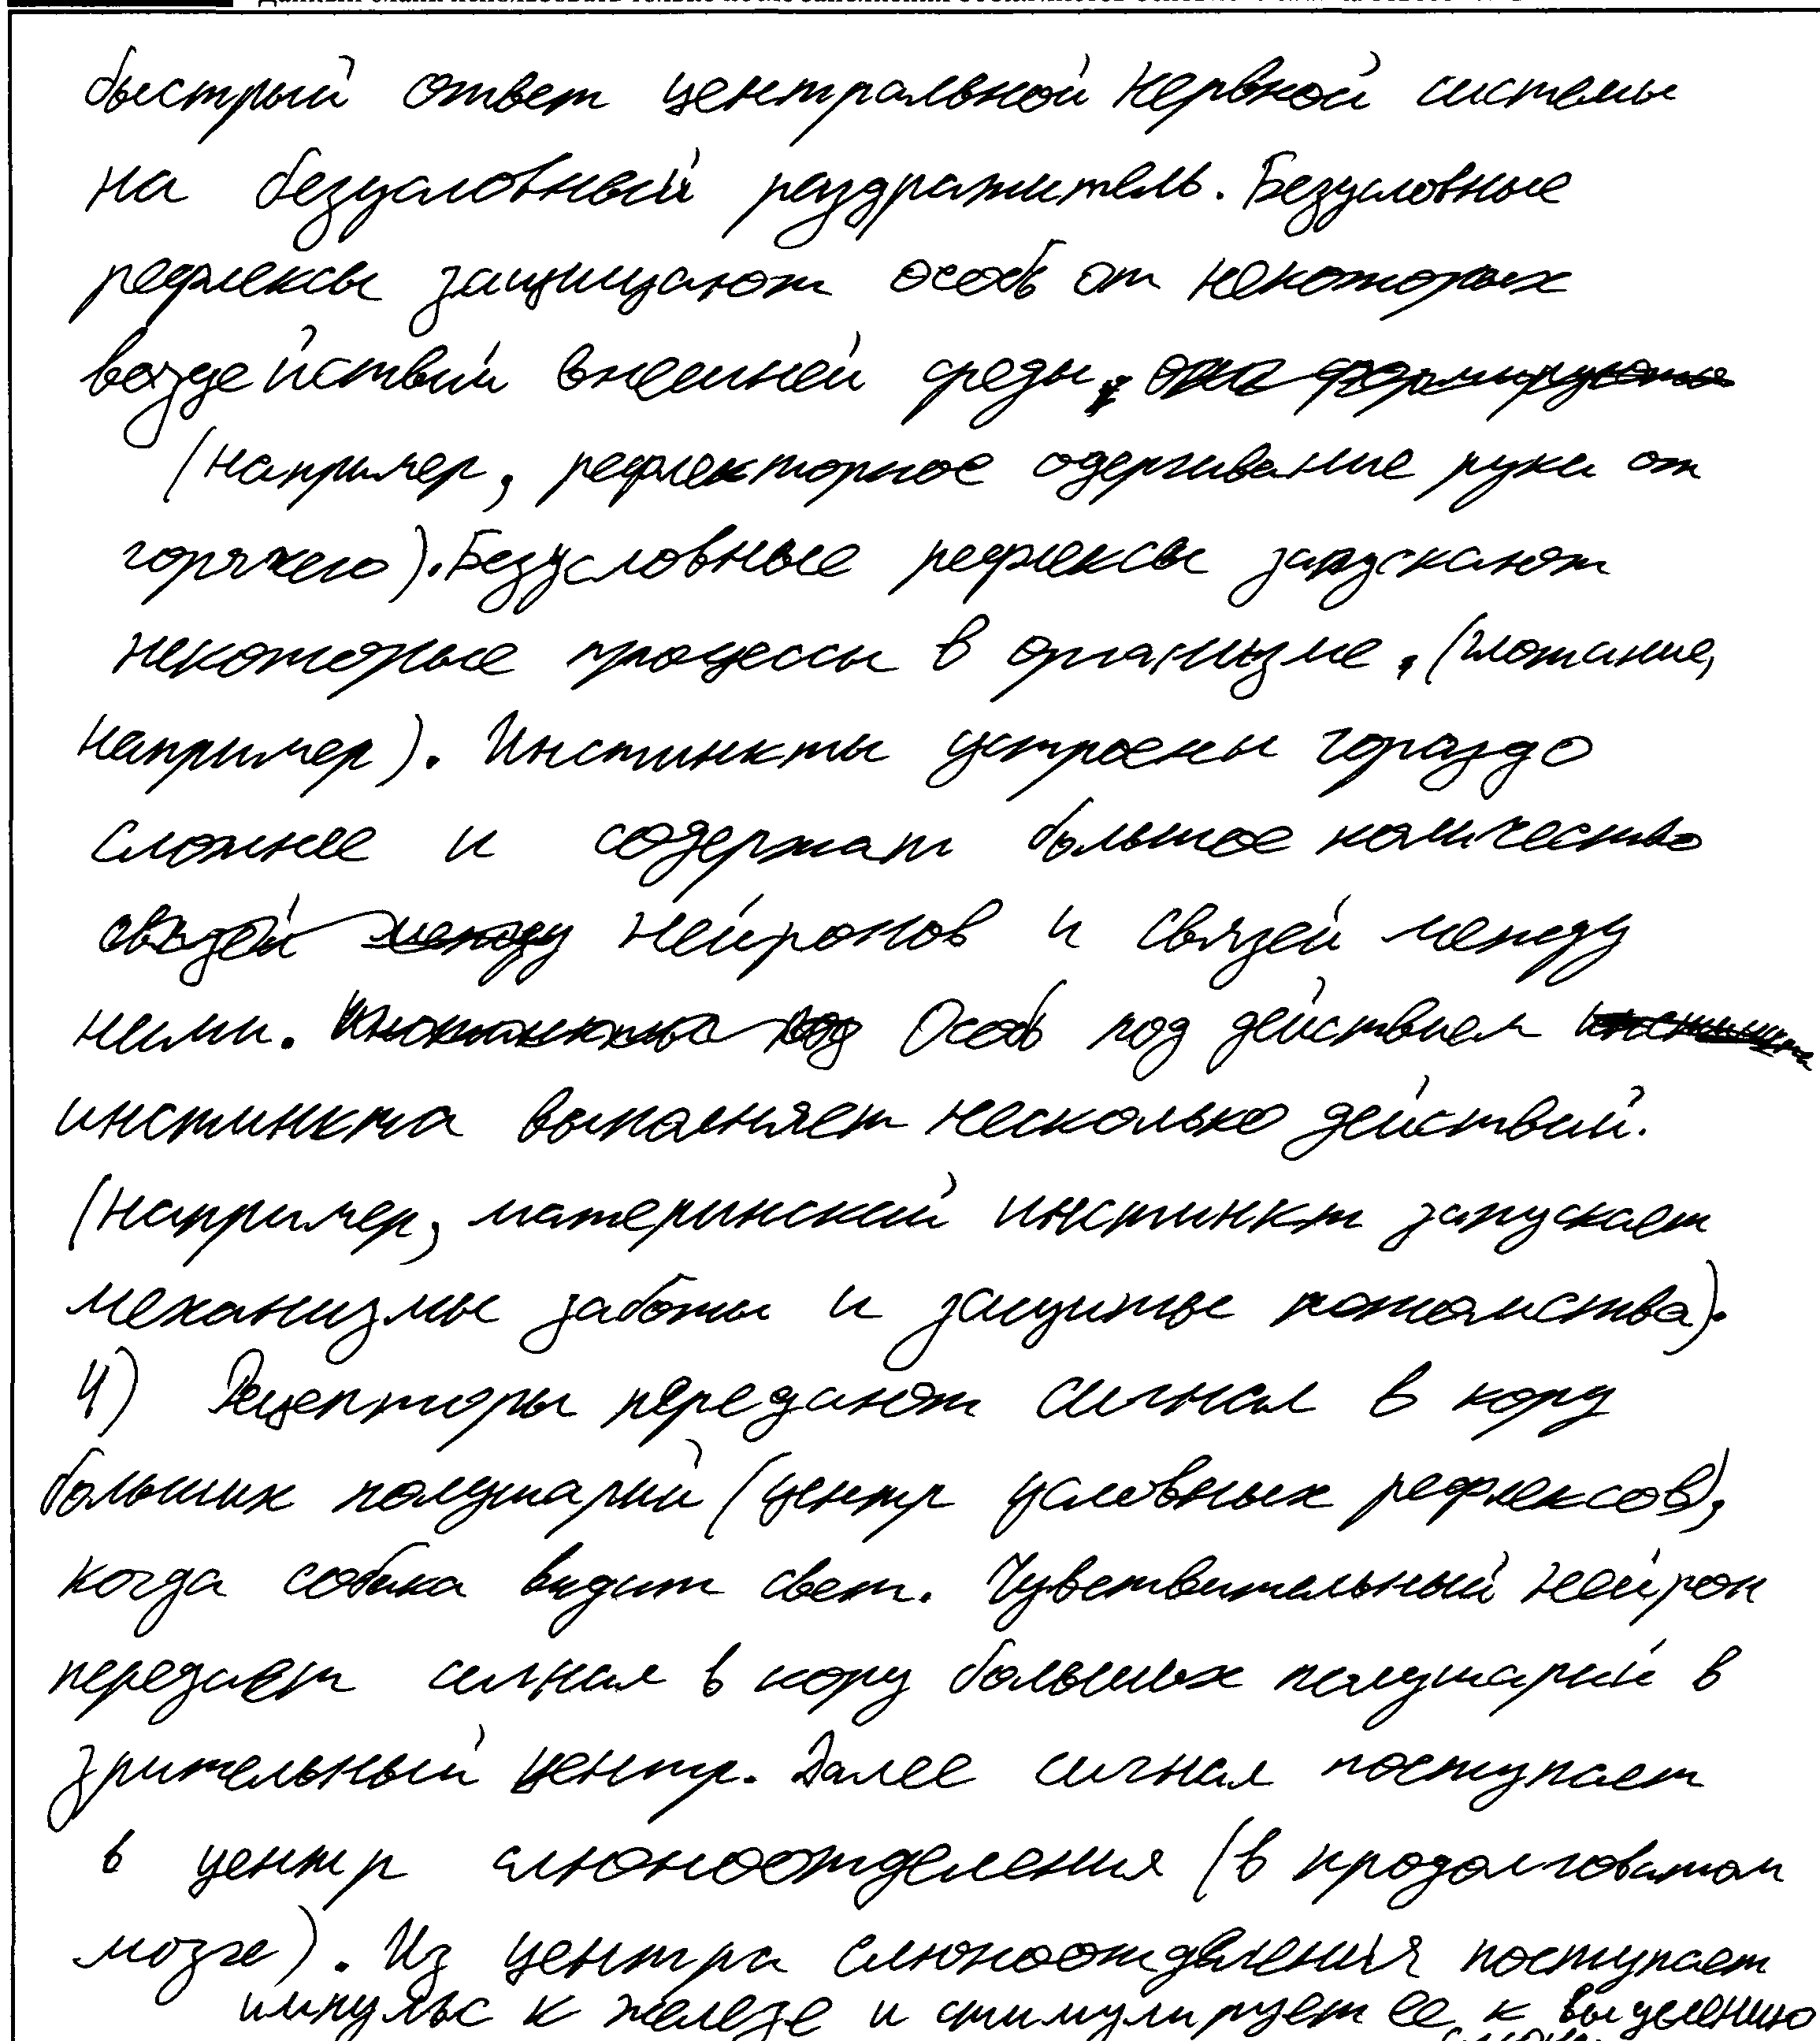 быстрый ответ центральной нервной системы
на безусловный раздражитель. Безусловные
рефлексы защищают особь от некоторых
воздействий внешней среды, они формируются
(например, рефлекторное одергивание руки от
горячего). Безусловные рефлексы запускают
некоторые процессы в организме, (глотание,
например). Инстинкты устроены гораздо
сложнее и содержат большое количество
связей между нейронов и связей между
ними. Инстинкты под Особь под действием инстинкта
инстинкта выполняет несколько действий.
(например, материнский инстинкт запускает
механизмы заботы и защиты потомства).
4) Рецепторы передают сигнал в кору
больших полушарий (центр условных рефлексов),
когда собака видит свет. Чувствительный нейрон
передает сигнал в кору больших полушарий в
зрительный центр. Далее сигнал поступает
в центр слюноотделения (в продолговатом
мозге). Из центра слюноотделения поступает
импульс к железе и стимулирует ее к выделению